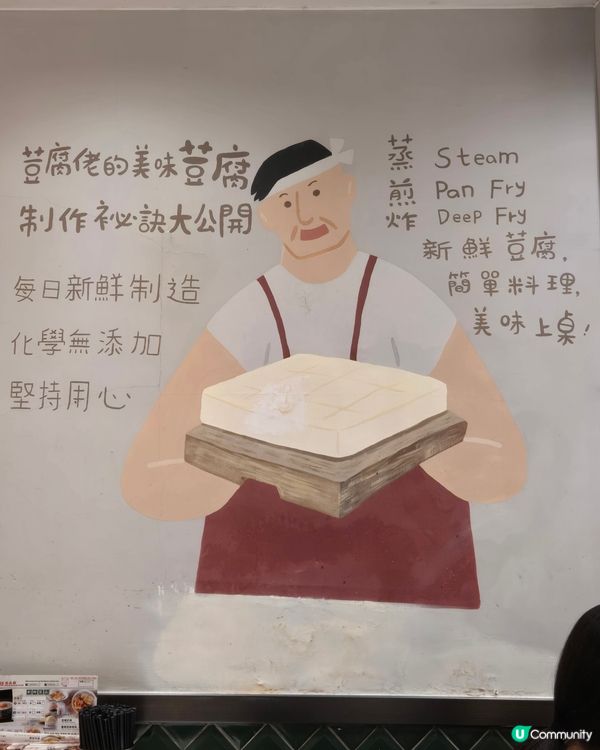 荳腐佬的美味荳腐
制作祕訣大公開
每日新鮮制造
化學無添加
堅持用心
蒸 Steam
煎 Pan Fry
炸 Deep Fry
新鮮荳腐,
簡單料理,
美味上桌!
U Community